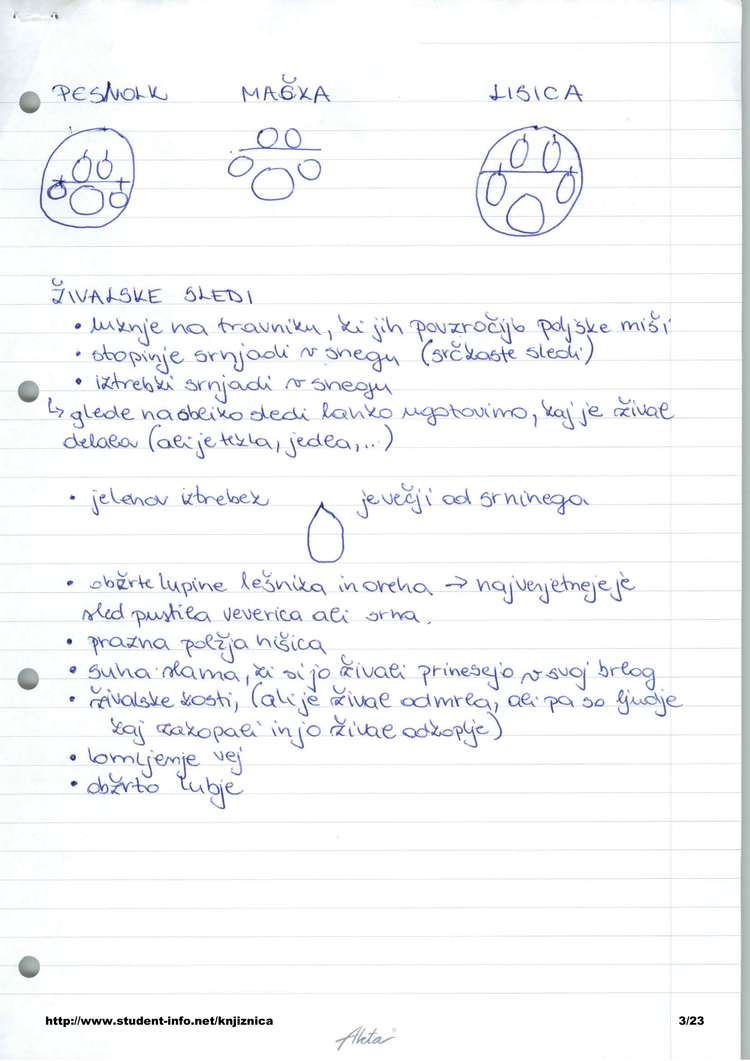 PES/VOLK MAČKA LISICA
ŽIVALSKE SLEDI
• luknje na travniku, ki jih povzročijo poljske miši
• stopinje srnjadi v snegu (srčkaste sledi)
• iztrebki srnjadi v snegu
↳ glede na obliko sledi lahko ugotovimo, kaj je žival
delala (ali je tekla, jedla,...)
• jelenov iztrebek je večji od srninega
• obžrte lupine lešnika in oreha → najverjetneje je
sled pustila veverica ali srna.
• prazna polžja hišica
• suha slama, ki si jo živali prinesejo v svoj brlog
• živalske kosti, (ali je žival odmrla, ali pa so ljudje
kaj zakopali in jo žival odkoplje)
• lomljenje vej
• obžrto lubje
http://www.student-info.net/knjiznica 3/23
Akta